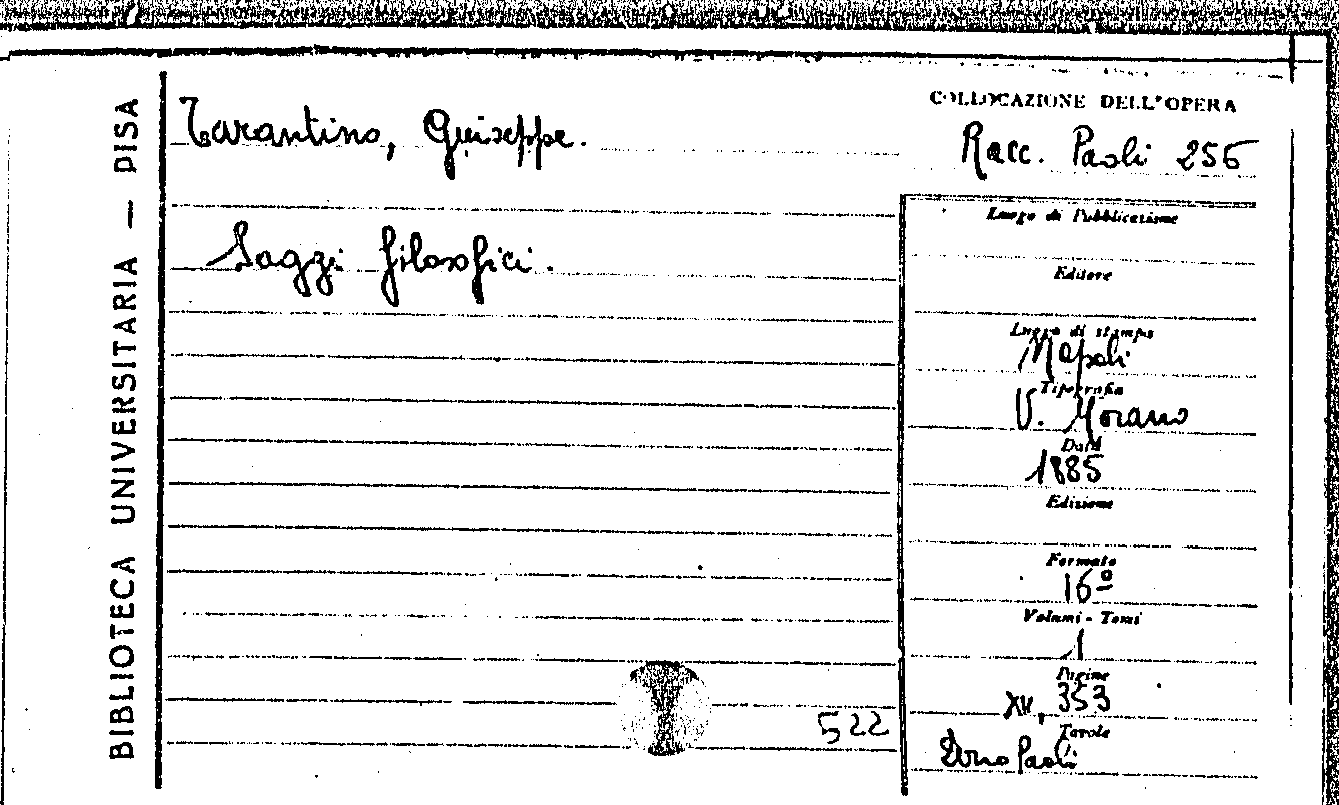 BIBLIOTECA UNIVERSITARIA — PISA
Tarantino, Giuseppe.
Saggi filosofici.
522
COLLOCAZIONE DELL'OPERA
Racc. Paoli 256
Luogo di Pubblicazione
Editore
Luogo di stampa
Napoli
Tipografia
V. Morano
Data
1885
Edizione
Formato
16º
Volumi - Tomi
1
Pagine
353
Tavole
Dono Paoli